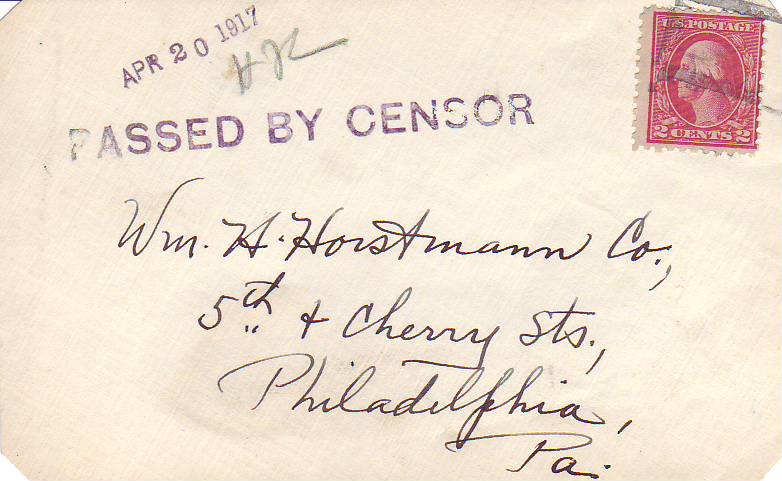 APR 20 1917
PASSED BY CENSOR
U.S. POSTAGE
2 CENTS 2
Wm. H. Horstmann Co.,
5th & Cherry Sts.,
Philadelphia,
Pa.